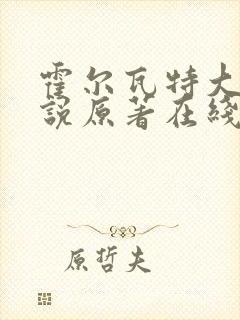 霍尔瓦特大
說原著在綫
原哲夫